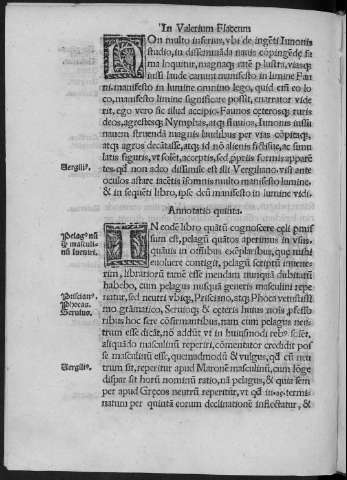 In Valerium Flaccum
NOn multo inferius, vbi de ingẽti Iunonis
studio, in disseminãda nauis cõpingẽdę fa
ma loquitur, magnaq; vrbẽ p lustra, viasq;
iussi laude canunt manifesto in lumine Fau
ni. manifesto in lumine omnino lego, quid eni ro lo
co, manifesto limine significare possit, enarrator vide
rit, ego vero sic illud accipio. Faunos cęterosq; ruris
deos, agrestesq; Nymphas, atq; siluios, Iunonis iussu
nauem struendã magnis laudibus per vias cõpitisq,
atq; agros decãtasse, atq; id nõ alienis fictisue, ac simu
latis figuris, vt solẽt, acceptis, sed pprijs formis apparẽ
Vergiliꝰ.
tes qd non adeo dissimile est illi Vergiliano. visi ante
oculos astare iacẽtis isomnis multo manifesto lumine.
& in sequẽti libro, ipse deũ manifesto in lumine vidi.
Annotatio quinta.
Pelagꝰ nũ
q̃ masculi-
nũ inueniri.
IN eodẽ libro quãtũ cognoscere cęli pmis
sum est, pelagũ quãtos aperimus in vsus.
quãuis in oĩbus exẽplaribus, quę nuhi
euoluere contigit, pelagũ scriptũ inuene-
rim, librariorũ tamẽ esse mendam nunquã dubitarũ
habebo, cum pelagus nusquã generis masculini repe
Priscianꝰ.
riatur, sed neutri vbiq;, Priscianꝰ, atq; Phoca vetustissi
Phocas.
Seruius.
mo grãmatico, Seruioq; & cęteris huius nois pfesso
ribus hoc sere cõfirmantibus, nam cum pelagus neu-
trum esse dicãt, nõ addũt vt in huiusmodi rebꝰ solẽt,
aliquãdo masculinũ reperiri, cõmentitor credidit pos
se masculinũ esse, quemadmodũ & vulgus, qd cũ neu
Vergiliꝰ.
trum sit, reperitur apud Maronẽ masculinũ, cum lõge
dispar sit horũ nominũ ratio, nã pelagus, & quia sem
per apud Gręcos neutrũ reperitur, vt qd in-os termi-
natum per quintã eorum declinationẽ inflectatur, &